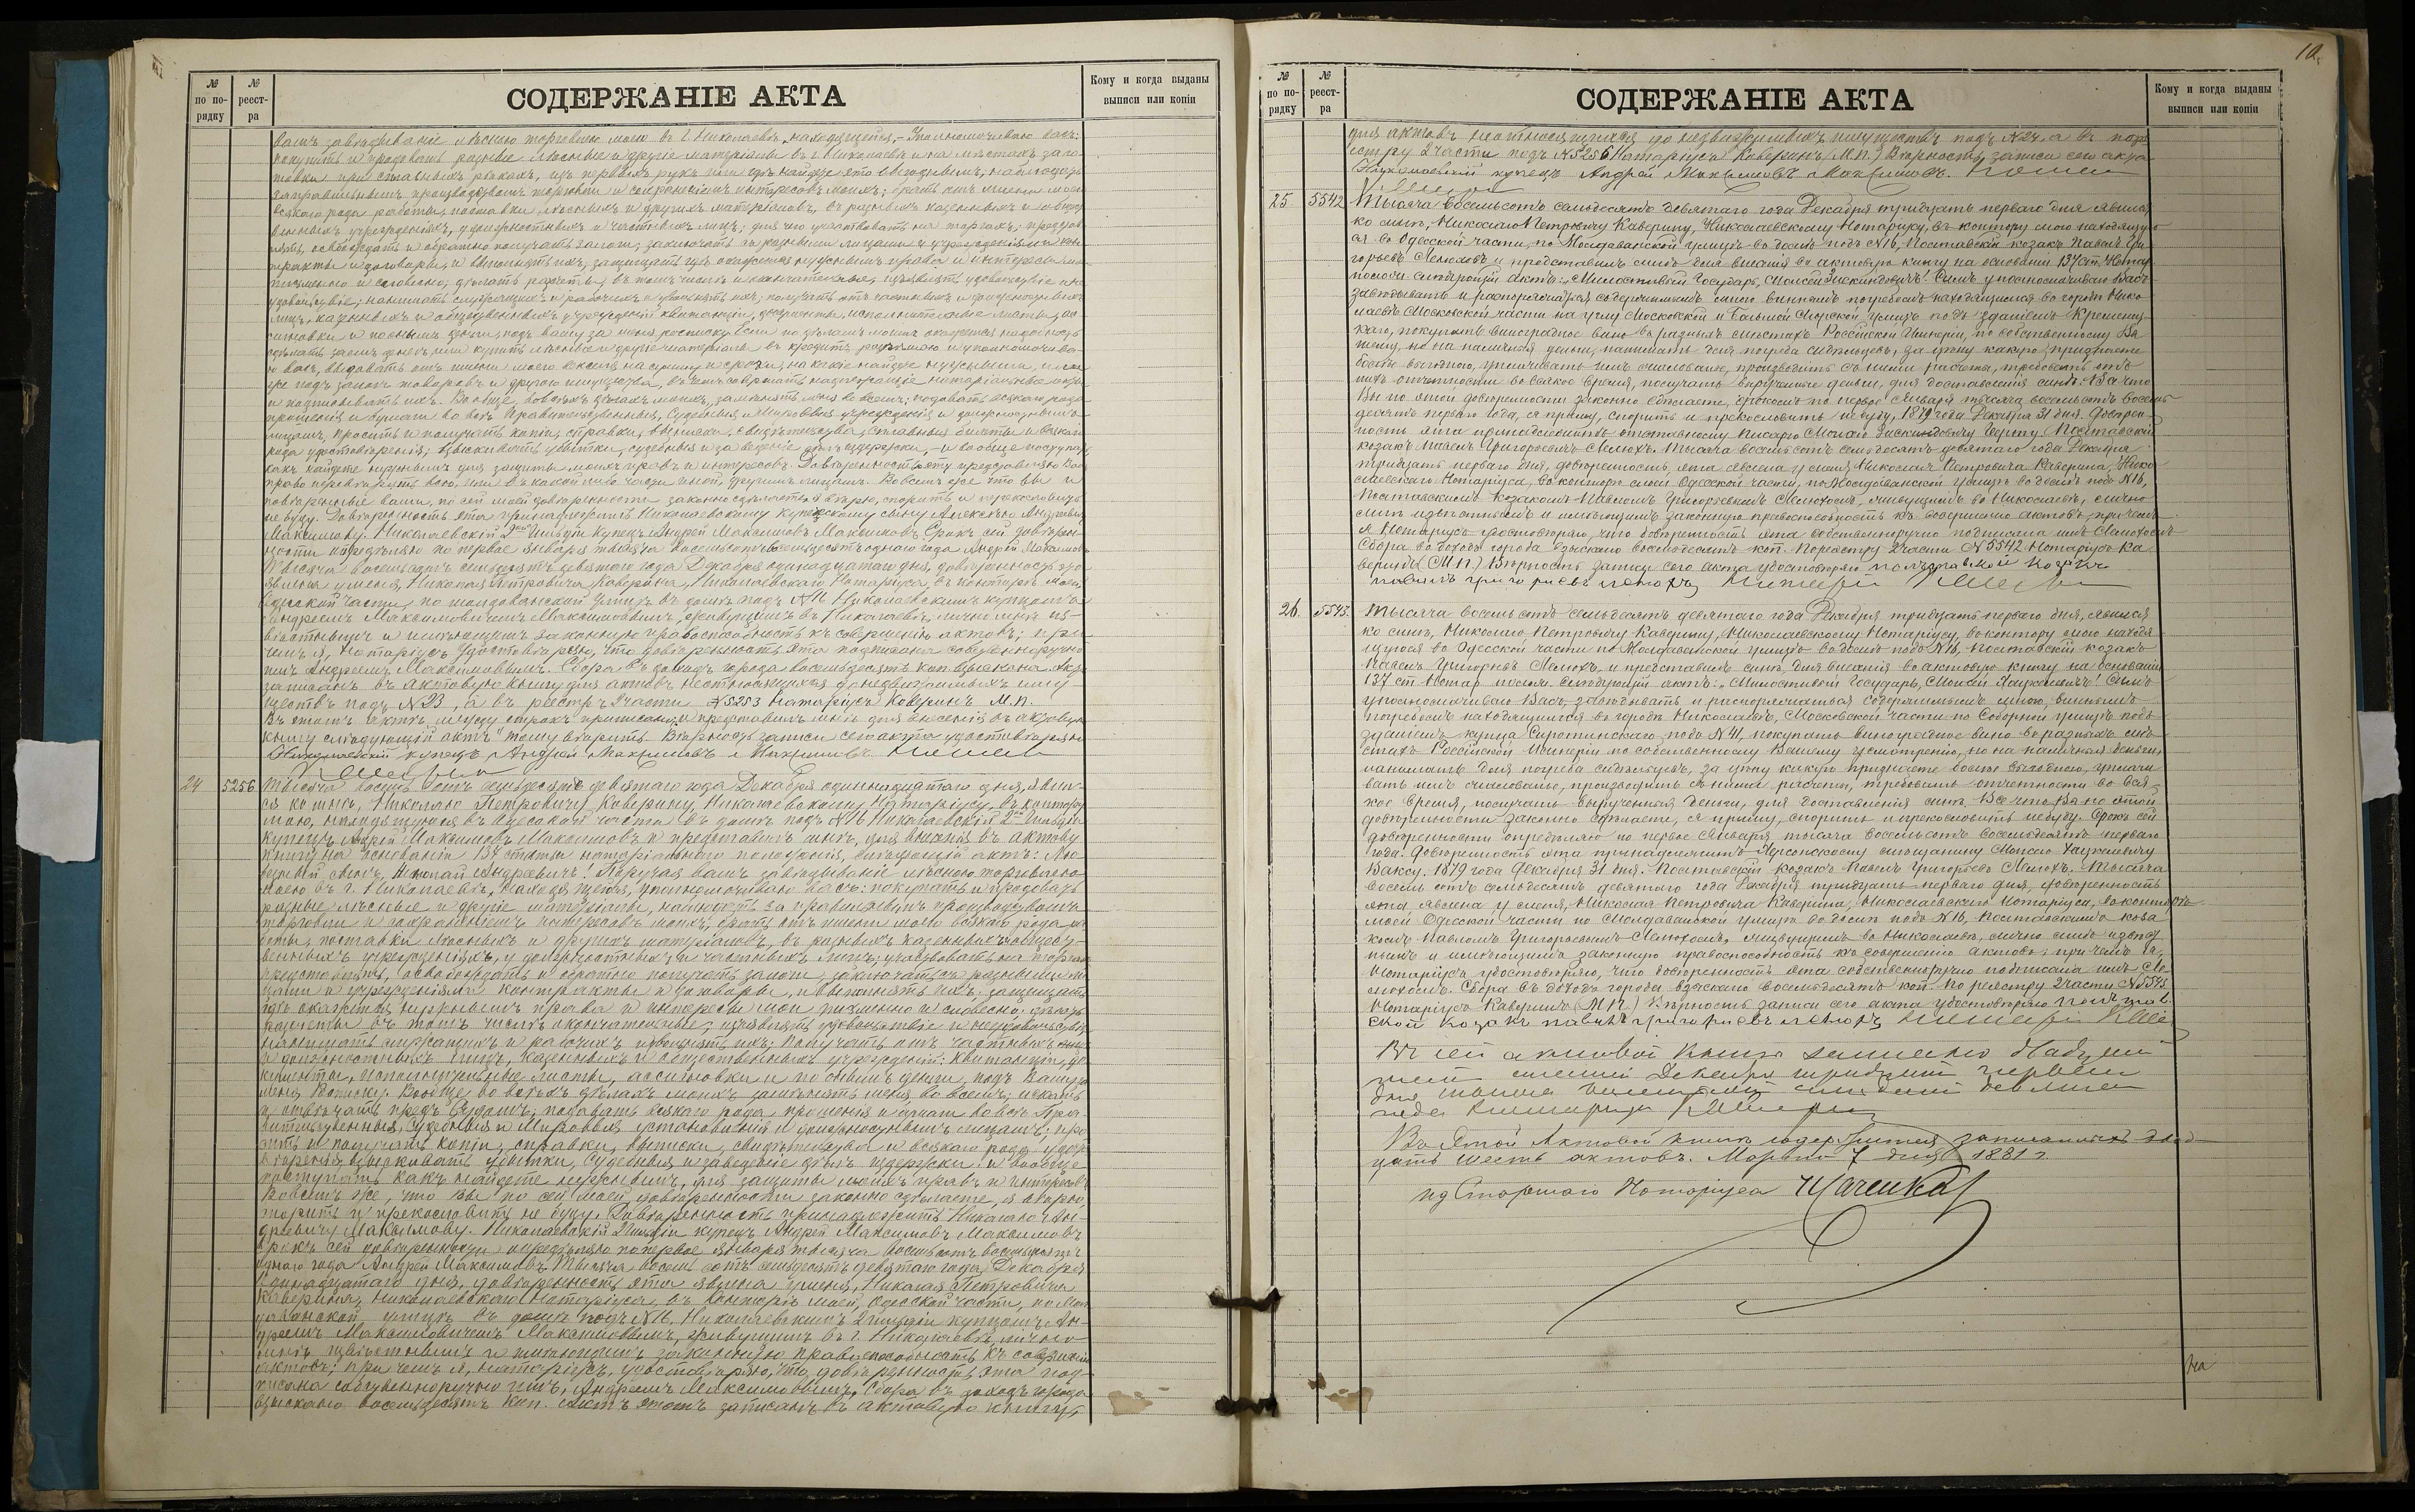 № по порядку
№ реестра
СОДЕРЖАНІЕ АКТА
Кому и когда выданы выписи или копіи
вамъ завѣдываніе лѣсною торговлею моею въ г. Николаевѣ находящейся, – Уполномочиваю васъ:
покупать и продавать разные лѣсные и другіе матеріалы въ г. Николаевѣ и на мѣстахъ заго-
товки при сплавныхъ рѣкахъ, изъ первыхъ рукъ или гдѣ найдете это выгоднымъ, наблюдать
за правильнымъ производствомъ торговли и сохраненіемъ интересовъ моихъ; брать отъ имени моего
всякаго рода работы, поставки лѣсныхъ и другихъ матеріаловъ, въ разныхъ казенныхъ и общест
венныхъ учрежденіяхъ, у должностныхъ и частныхъ лицъ; для чего участвовать на торгахъ; представ
лять, освобождать и обратно получать залоги; заключать съ разными лицами и учрежденіями кон
тракты и договоры, и выполнять ихъ, защищать гдѣ окажется нужнымъ права и интересы мои
письменно и словесно; дѣлать расчеты, въ томъ числѣ и окончательные, изъявлять удовольствіе и не
удовольствіе; нанимать служащихъ и рабочихъ и увольнять ихъ; получать отъ частныхъ и должностныхъ
лицъ, казенныхъ и общественныхъ учрежденій квитанціи, документы, исполнительные листы, ас
сигновки и по онымъ деньги, подъ вашу за меня росписку. Если по дѣламъ моимъ окажется надобность
сдѣлать заемъ денегъ, или купить лѣсные и другіе матеріалы въ кредитъ разрѣшаю и уполномочива-
ю васъ, выдавать отъ имени моего векселя на сумму и сроки, на какіе найдете нужными, или
же подъ залогъ товаровъ и другого имущества, въ чемъ совершать надлежащіе нотаріальные акты
и подписывать ихъ. Вообще, во всѣхъ дѣлахъ моихъ, замѣнять меня во всемъ; подавать всякаго рода
прошенія и бумаги во всѣ Правительственныя, Судебныя и Мировыя учрежденія и должностнымъ
лицамъ, просить и получать копіи, справки, выписки, свидѣтельства, сплавные билеты и всякаго
рода удостовѣренія; взыскивать убытки, судебныя и за веденіе дѣлъ издержки, – и вообще поступать,
какъ найдете нужнымъ для защиты моихъ правъ и интересовъ. Довѣренность эту предоставляю Вамъ
право передовѣрять всю, или въ какой либо части иной, другимъ лицамъ. Во всемъ же что вы и
повѣренные ваши, по сей моей довѣренности законно сдѣлаете, я вѣрю, спорить и прекословить
не буду. Довѣренность эта принадлежитъ Николаевскому купеческому сыну Алексѣю Андреевичу
Максимову. Николаевскій 2ой Гильдіи Купецъ Андрей Максимовъ Максимовъ. Срокъ сей довѣрен-
ности опредѣляю по первое января тысяча восемьсотъ восемьдесятъ одного года Андрей Максимовъ
Тысяча восемьсотъ семьдесятъ девятаго года Декабря одинадцатаго дня, довѣренность эта
явлена у меня, Николая Петровича Каверина, Николаевскаго Нотаріуса, въ конторѣ моей
Одесской части, по молдованской улицѣ въ домѣ подъ №16 Николаевскимъ купцомъ
Андреемъ Максимовичемъ Максимовымъ, живущимъ въ Николаевѣ, лично мнѣ из-
вѣстнымъ и имѣющимъ законную правоспособность къ совершенію актовъ; при
чемъ я, Нотаріусъ удостовѣряю, что довѣренность эта подписана собственноручно
имъ Андреемъ Максимовымъ. Сбора въ доходъ города восемьдесятъ коп. взыскано. Актъ
записанъ въ актовую книгу для актовъ неотносящихся до недвижимыхъ иму
ществъ подъ №23, а въ реестръ 2 части №5253 Нотаріусъ Каверинъ М.П.
Въ этомъ актѣ между строкъ приписано: и представилъ мнѣ для внесенія въ актовую
книгу слѣдующій актъ" тому вѣрить. Вѣрность записи сего акта удостовѣряемъ
Николаевскій купецъ Андрей Максимовъ Максимовъ.
24 5256 Тысяча восемь сотъ семьдесятъ девятаго года Декабря одиннадцатаго дня, явил-
ся ко мнѣ, Николаю Петровичу Каверину, Николаевскому Нотаріусу, въ контору
мою, находящуюся въ Одесской части въ домѣ подъ №16 Николаевскій 2ой Гильдіи
купецъ Андрей Максимовъ Максимовъ и представилъ мнѣ, для внесенія въ актовую
книгу на основаніи 137 статьи нотаріальнаго положенія, слѣдующій актъ: Лю-
безный сынъ, Николай Андреевичъ! Поручая вамъ завѣдываніе лѣсною торговлею
моею въ г. Николаевѣ, находящейся, уполномочиваю васъ: покупать и продавать
разные лѣсные и другіе матеріалы, наблюдать за правильнымъ производствомъ
торговли и сохраненіемъ интересовъ моихъ; брать отъ имени моего всякаго рода ра
боты, поставки лѣсныхъ и другихъ матеріаловъ, въ разныхъ казенныхъ и общест-
венныхъ учрежденіяхъ, у должностныхъ и частныхъ лицъ; участвовать на торгахъ
представлять, освобождать и обратно получать залоги, заключать съ разными ли
цами и учрежденіями контракты и договоры, и выполнять ихъ, защищать
гдѣ окажется нужнымъ права и интересы мои письменно и словесно; дѣлать
расчеты въ томъ числѣ окончательные; изъявлять удовольствіе и неудовольствіе
нанимать служащихъ и рабочихъ и увольнять ихъ; получать отъ частныхъ
и должностныхъ лицъ, казенныхъ и общественныхъ учрежденій: квитанціи, до
кументы, исполнительные листы, ассигновки и по онымъ деньги, подъ Вашу за
меня росписку. Вообще во всѣхъ дѣлахъ моихъ замѣнять меня во всемъ; искать
и отвѣчать предъ Судомъ, подавать всякаго рода прошенія и бумаги во всѣ Пра-
вительственныя, Судебныя и Мировыя установленія и должностнымъ лицамъ; про
сить и получать копіи, справки, выписки, свидѣтельства и всякаго рода удос
товѣренія, взыскивать убытки, судебныя и за веденіе дѣлъ издержки и вообще
поступать какъ найдете нужнымъ, для защиты моихъ правъ и интересовъ
Во всемъ же, что Вы по сей моей довѣренности законно сдѣлаете, я вѣрю,
спорить и прекословить не буду. Довѣренность принадлежитъ Николаю Ан-
дреевичу Максимову. Николаевскій 2 гильдіи купецъ Андрей Максимовъ Максимовъ
Срокъ сей довѣренности опредѣляю по первое января тысяча восемьсотъ восемьдесятъ
одного года Андрей Максимовъ. Тысяча восемь сотъ семьдесятъ девятаго года, Декабря
Одинадцатаго дня, довѣренность эта явлена у меня, Николая Петровича
Каверина, Николаевскаго Нотаріуса, въ конторѣ моей, Одесской части, по Мол
даванской улицѣ въ домѣ подъ №16, Николаевскимъ 2 гильдіи купцомъ Ан-
дреемъ Максимовичемъ Максимовымъ, живущимъ въ г. Николаевѣ, лично
мнѣ извѣстнымъ и имѣющимъ законную правоспособность къ совершенію
актовъ; при чемъ я, нотаріусъ, удостовѣряю, что довѣренность эта под-
писана собственноручно имъ, Андреемъ Максимовымъ. Сбора въ доходъ города
взыскано восемьдесятъ коп. Актъ этотъ записанъ въ актовую книгу,
№ по порядку
№ реестра
СОДЕРЖАНІЕ АКТА
Кому и когда выданы выписи или копіи
для актовъ неотносящихся до недвижимыхъ имуществъ подъ №24. а въ
естру 2 части подъ №5256 Нотаріусъ Каверинъ (М.П.) Вѣрность записи сего акта
Николаевскій купецъ Андрей Максимовъ Максимовъ.
25 5542 Тысяча восемьсотъ семьдесятъ девятаго года Декабря тридцать перваго дня явился
ко мнѣ, Николаю Петровичу Каверину, Николаевскому Нотаріусу, въ контору мою находящую
ся въ Одесской части, по Молдаванской улицѣ въ домѣ подъ №16, Полтавскій козакъ Павелъ Гри
горьевъ Мелюхъ и представилъ мнѣ для внесенія въ актовую книгу на основаніи 137 ст. Нотар
полож. слѣдующій актъ: „Милостивый Государь, Моисей Зискиндовичъ! Симъ уполномочиваю Васъ
завѣдывать и распоряжаться содержимымъ мною виннымъ погребомъ находящимся въ городѣ Нико
лаевѣ Московской части на углу Московской и Большой Морской улицъ подъ зданіемъ
каго, покупать виноградное вино въ разныхъ мѣстахъ Россійской Имперіи, по собственному Ва
шему, но на наличныя деньги, нанимать для погреба сидѣльцевъ, за цѣну какую признаете
болѣе выгодною, уплачивать имъ жалованье, производить съ ними расчеты, требовать отъ
нихъ отчетности во всякое время, получать вырученныя деньги, для доставленія мнѣ. Все что
Вы по этой довѣренности законно сдѣлаете, срокомъ по первое Января тысяча восемьсотъ восемь
десятъ перваго года, я приму, спорить и прекословить небуду, 1879 года Декабря 31 дня. Довѣрен
ность эта принадлежитъ отставному Писарю Моисею Зискиндовичу Полтавскій
козакъ Павелъ Григорьевъ Мелюхъ. Тысяча восемьсотъ семьдесятъ девятаго года Декабря
тридцать перваго дня, довѣренность эта явлена у меня Николая Петровича Каверина, Нико
лаевскаго Нотаріуса, въ конторѣ моей Одесской части, по Молдаванской улицѣ въ домѣ подъ №16,
Полтавскимъ козакомъ Павломъ Григорьевымъ Мелюхомъ, живущимъ въ Николаевѣ, лично
мнѣ извѣстнымъ и имѣющимъ законную правоспособность къ совершенію актовъ; при чемъ
я Нотаріусъ удостовѣряю, что довѣренность эта собственноручно подписана имъ Мелюхомъ
Сбора въ доходъ города взыскано восемьдесятъ коп. По реестру 2 части №5542 Нотаріусъ Ка
веринъ (М.П.) Вѣрность записи сего акта удостовѣряю полтавской козакъ
павелъ григориевъ мелюхъ
26. 5543. Тысяча восемьсотъ семьдесятъ девятаго года Декабря тридцать перваго дня, явился
ко мнѣ, Николаю Петровичу Каверину, Николаевскому Нотаріусу, въ контору мою находя
щуюся въ Одесской части по Молдаванской улицѣ въ домѣ подъ №16, Полтавскій козакъ
Павелъ Григорьевъ Мелюхъ, и представилъ мнѣ для внесенія въ актовую книгу на основаніи
137 ст Нотар полож. слѣдующій актъ: „Милостивый Государь, Моисей Хаускелевичъ! Симъ
уполномочиваю Васъ, завѣдывать и распоряжаться содержимымъ мною, виннымъ
погребомъ находящимся въ городѣ Николаевѣ, Московской части по Соборной улицѣ подъ
зданіемъ купца Сиротинскаго подъ №41, покупать виноградное вино въ разныхъ мѣ
стахъ Россійской Имперіи по собственному Вашему усмотрѣнію, но на наличныя деньги,
нанимать для погреба сидѣльцевъ, за цѣну какую признаете болѣе выгодною, уплачи
вать имъ жалованье, производить съ ними расчеты, требовать отчетности во вся
кое время, получать вырученныя деньги, для доставленія мнѣ. Все что Вы по этой
довѣренности законно сдѣлаете, я приму, спорить и прекословить небуду. Срокъ сей
довѣренности опредѣляю по первое Января, тысяча восемьсотъ восемьдесятъ перваго
года. Довѣренность эта принадлежитъ Херсонскому мѣщанину Моисею Хаускелевичу
Ваксу. 1879 года Декабря 31 дня. Полтавскій козакъ Павелъ Григорьевъ Мелюхъ. Тысяча
восемь сотъ семьдесятъ девятаго года Декабря тридцать перваго дня, довѣренность
эта явлена у меня, Николая Петровича Каверина, Николаевскаго Нотаріуса, въ конторѣ
моей Одесской части по Молдаванской улицѣ въ домѣ подъ №16, Полтавскимъ коза
комъ Павломъ Григорьевымъ Мелюхомъ, живущимъ въ Николаевѣ, лично мнѣ извѣст
нымъ и имѣющимъ законную правоспособность къ совершенію актовъ; при чемъ я,
Нотаріусъ удостовѣряю, что довѣренность эта собственноручно подписана имъ Ме
люхомъ. Сбора въ доходъ города взыскано восемьдесятъ коп. По реестру 2 части №5543
Нотаріусъ Каверинъ (М.П.) Вѣрность записи сего акта удостовѣряю полтав
ской козакъ павелъ григориевъ мелюхъ
Въ сей актовой книгѣ записано двадцать
шесть Декабря тридцать перваго
дня тысяча восемьсотъ семьдесятъ девятаго
года
Въ этой Актовой книгѣ содержится записанныхъ двад-
цать шесть актовъ. Марта 7 дня 1881 г.
ид Старшаго Нотаріуса